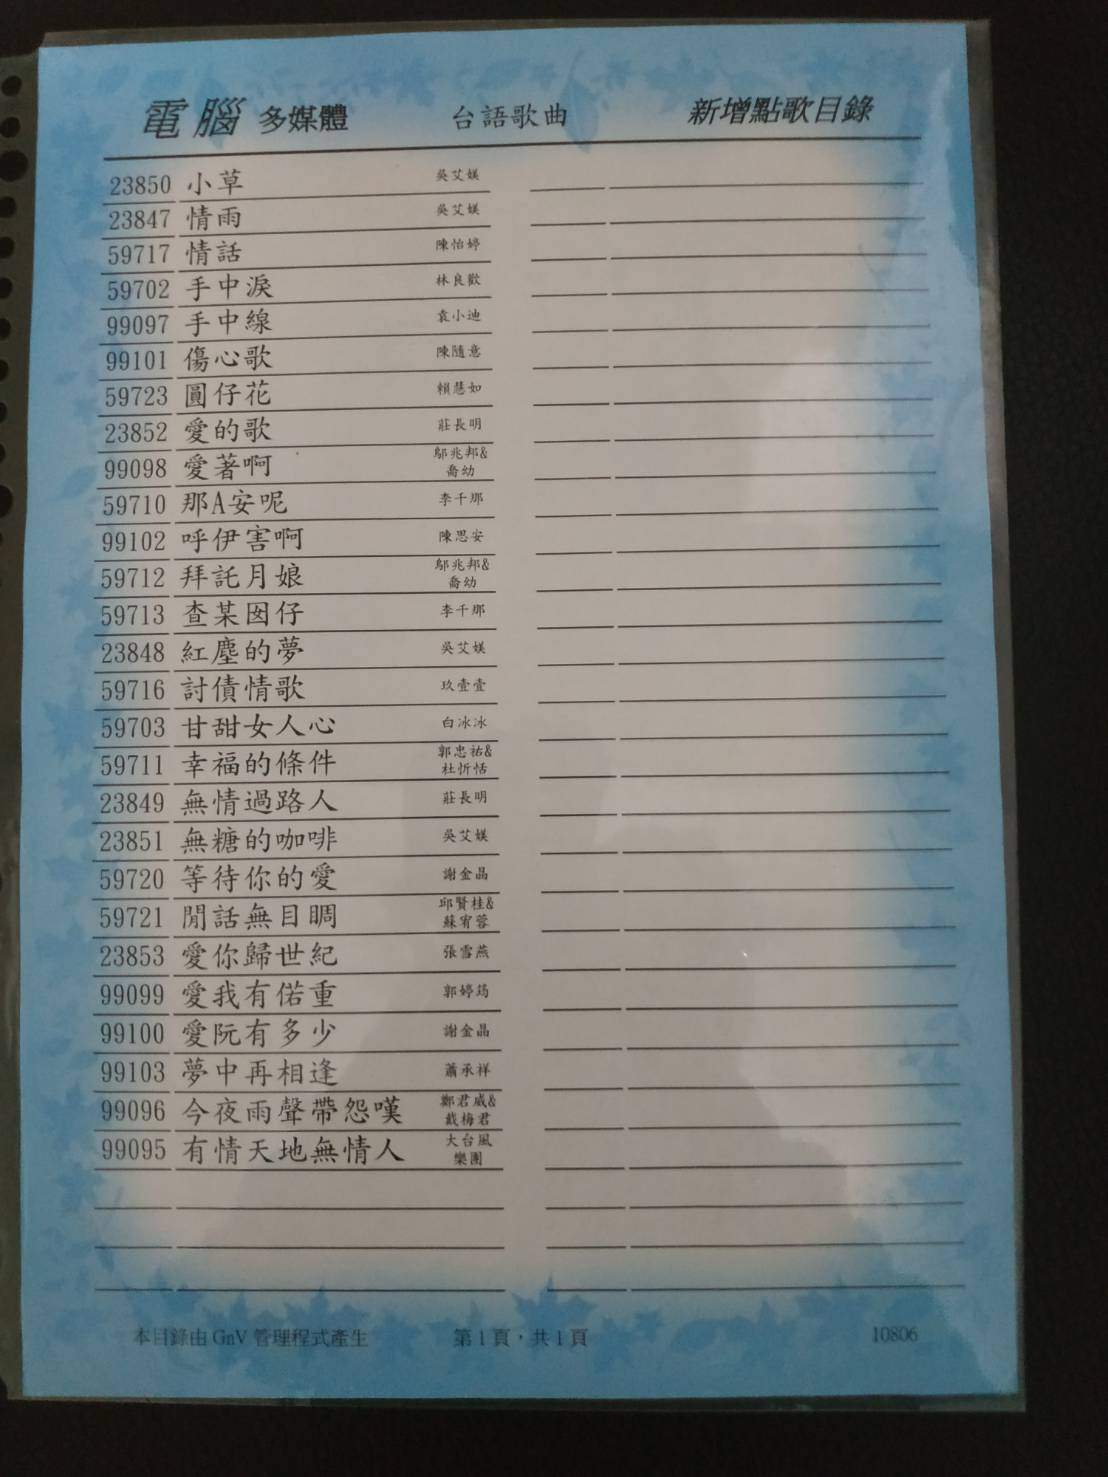 電腦 多媒體 台語歌曲 新增點歌目錄
23850 小草 吳艾媄
23847 情雨 吳艾媄
59717 情話 陳怡婷
59702 手中淚 林良歡
99097 手中線 袁小迪
99101 傷心歌 陳隨意
59723 圓仔花 賴慧如
23852 愛的歌 莊長明
99098 愛著啊 鄔兆邦&
喬幼
59710 那A安呢 李千那
99102 呼伊害啊 陳思安
59712 拜託月娘 鄔兆邦&
喬幼
59713 查某囡仔 李千那
23848 紅塵的夢 吳艾媄
59716 討債情歌 玖壹壹
59703 甘甜女人心 白冰冰
59711 幸福的條件 郭忠祐&
杜忻恬
23849 無情過路人 莊長明
23851 無糖的咖啡 吳艾媄
59720 等待你的愛 謝金晶
59721 閒話無目睭 邱賢桂&
蘇宥蓉
23853 愛你歸世紀 張雪燕
99099 愛我有偌重 郭婷筠
99100 愛阮有多少 謝金晶
99103 夢中再相逢 蕭承祥
99096 今夜雨聲帶怨嘆 鄭君威&
戴梅君
99095 有情天地無情人 大台風
樂團
本目錄由 GnV 管理程式產生 第1頁，共1頁 10806